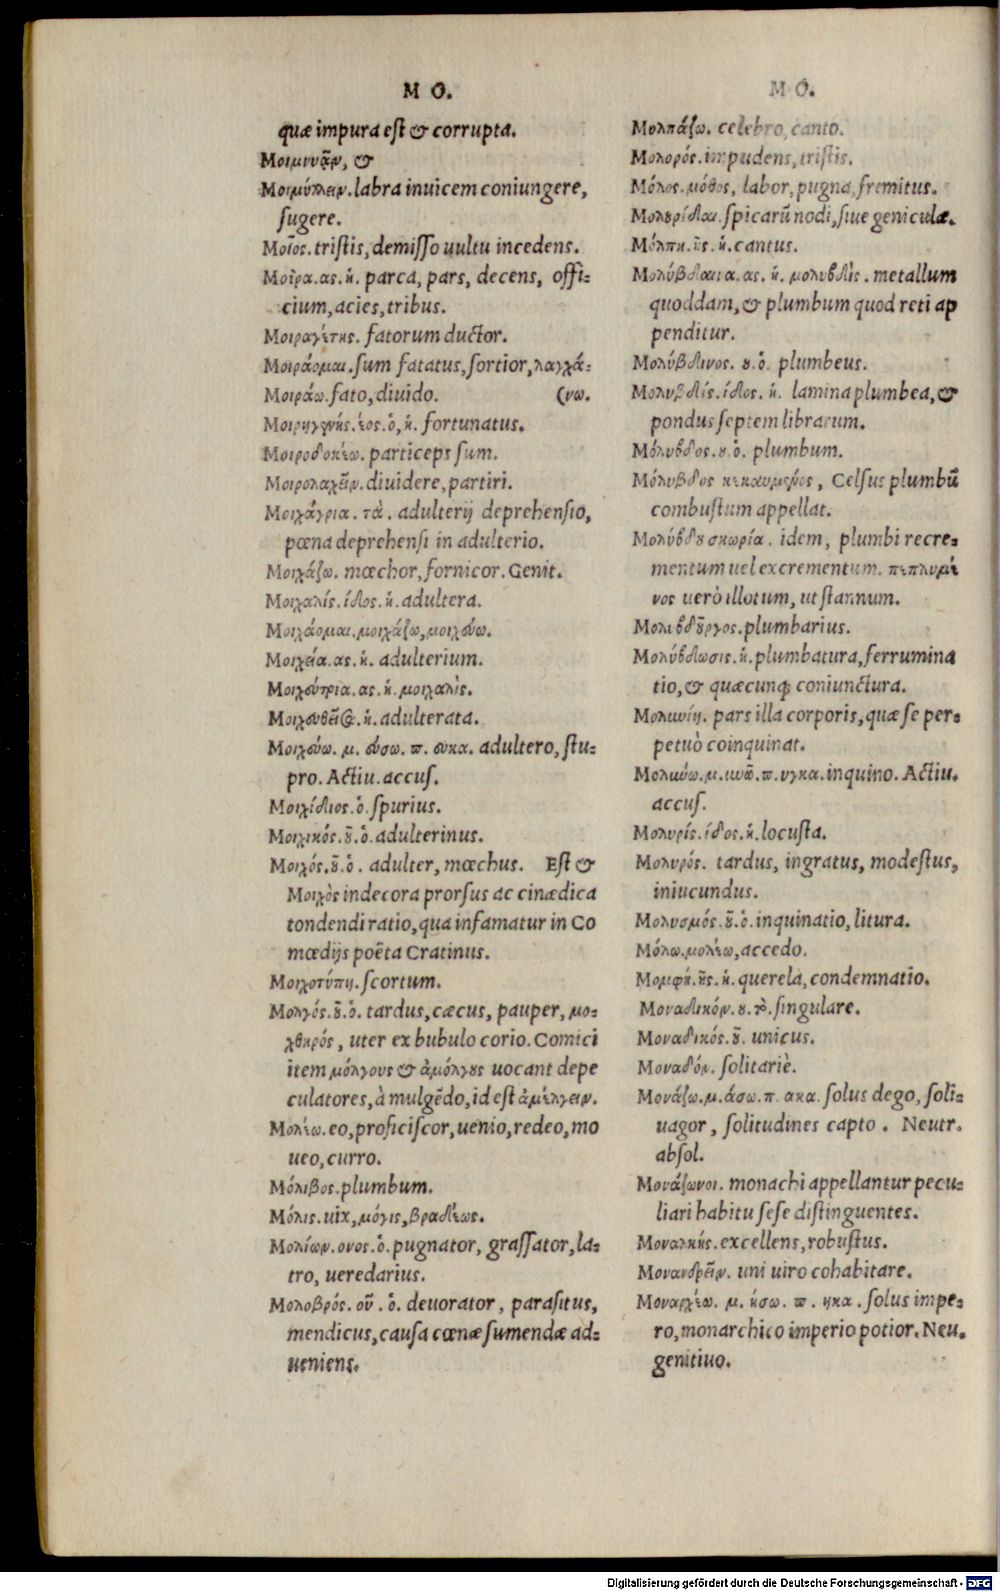 M O.
quæ impura est & corrupta.
Μοιμνυᾷν, &
Μοιμύπλειν. labra inuicem coniungere,
sugere.
Μοῖος. tristis, demisso uultu incedens.
Μοῖρα. ας. ἡ. parca, pars, decens, offi-
cium, acies, tribus.
Μοιραγέτης. fatorum ductor.
Μοιράομαι. sum fatatus, sortior, λαγχά-
Μοιράω. fato, diuido. (νω.
Μοιρηγενής. έος. ὁ, ἡ. fortunatus.
Μοιροδοκέω. particeps sum.
Μοιρολαχεῖν. diuidere, partiri.
Μοιχάγρια. τὰ. adulterij deprehensio,
pœna deprehensi in adulterio.
Μοιχάζω. mœchor, fornicor. Genit.
Μοιχαλίς. ίδος. ἡ. adultera.
Μοιχάομαι. μοιχάζω, μοιχεύω.
Μοιχεία. ας. ἡ. adulterium.
Μοιχεύτρια. ας. ἡ. μοιχαλὶς.
Μοιχευθεῖσα. ἡ. adulterata.
Μοιχεύω. μ. εύσω. π. ευκα. adultero, stu-
pro. Actiu. accus.
Μοιχίδιος. ὁ. spurius.
Μοιχικός. οῦ. ὁ. adulterinus.
Μοιχός. οῦ. ὁ. adulter, mœchus. Est &
Μοιχὸς indecora prorsus ac cinædica
tondendi ratio, qua infamatur in Co
mœdijs poëta Cratinus.
Μοιχοτύπη. scortum.
Μολγός. οῦ. ὁ. tardus, cæcus, pauper, μο-
χθηρός, uter ex bubulo corio. Comici
item μόλγους & ἀμόλγους uocant depe
culatores, à mulgẽdo, id est ἀμέλγειν.
Μολέω. eo, proficiscor, uenio, redeo, mo
ueo, curro.
Μόλιβος. plumbum.
Μόλις. uix, μόγις, βραδέως.
Μολίων. ονος. ὁ. pugnator, grassator, la-
tro, ueredarius.
Μολοβρός. οῦ. ὁ. deuorator, parasitus,
mendicus, causa cœnæ sumendæ ad-
ueniens.
M O.
Μολπάζω. celebro, canto.
Μολορός. impudens, tristis.
Μόλος. μόθος, labor, pugna, fremitus.
Μολουρίδαι. spicarũ nodi, siue geniculæ.
Μόλπη. ῆς. ἡ. cantus.
Μολύβδαια. ας. ἡ. μολυβδὶς. metallum
quoddam, & plumbum quod reti ap
penditur.
Μολύβδινος. ου. ὁ. plumbeus.
Μολυβδίς. ίδος. ἡ. lamina plumbea, &
pondus septem librarum.
Μόλυβδος. ου. ὁ. plumbum.
Μόλυβδος κεκαυμένος, Celsus plumbũ
combustum appellat.
Μολύβδου σκωρία. idem, plumbi recre-
mentum uel excrementum. πεπλυμέ
νος uerò illotum, ut stannum.
Μολιβδοῦργος. plumbarius.
Μολύβδωσις. ἡ. plumbatura, ferrumina
tio, & quæcunq; coniunctura.
Μολυνίη. pars illa corporis, quæ se per-
petuò coinquinat.
Μολύνω. μ. υνῶ. π. υγκα. inquino. Actiu.
accus.
Μολυρίς. ίδος. ἡ. locusta.
Μολυρός. tardus, ingratus, modestus,
iniucundus.
Μολυσμός. οῦ. ὁ. inquinatio, litura.
Μόλω. μολέω, accedo.
Μομφή. ῆς. ἡ. querela, condemnatio.
Μοναδικόν. ου. τὸ. singulare.
Μοναδικός. οῦ. unicus.
Μοναδόν. solitariè.
Μονάζω. μ. άσω. π. ακα. solus dego, soli-
uagor, solitudines capto. Neutr.
absol.
Μονάζωνοι. monachi appellantur pecu-
liari habitu sese distinguentes.
Μοναλκής. excellens, robustus.
Μονανδρεῖν. uni uiro cohabitare.
Μοναρχέω. μ. ήσω. π. ηκα. solus impe-
ro, monarchico imperio potior. Neu.
genitiuo.
Digitalisierung gefördert durch die Deutsche Forschungsgemeinschaft - DFG